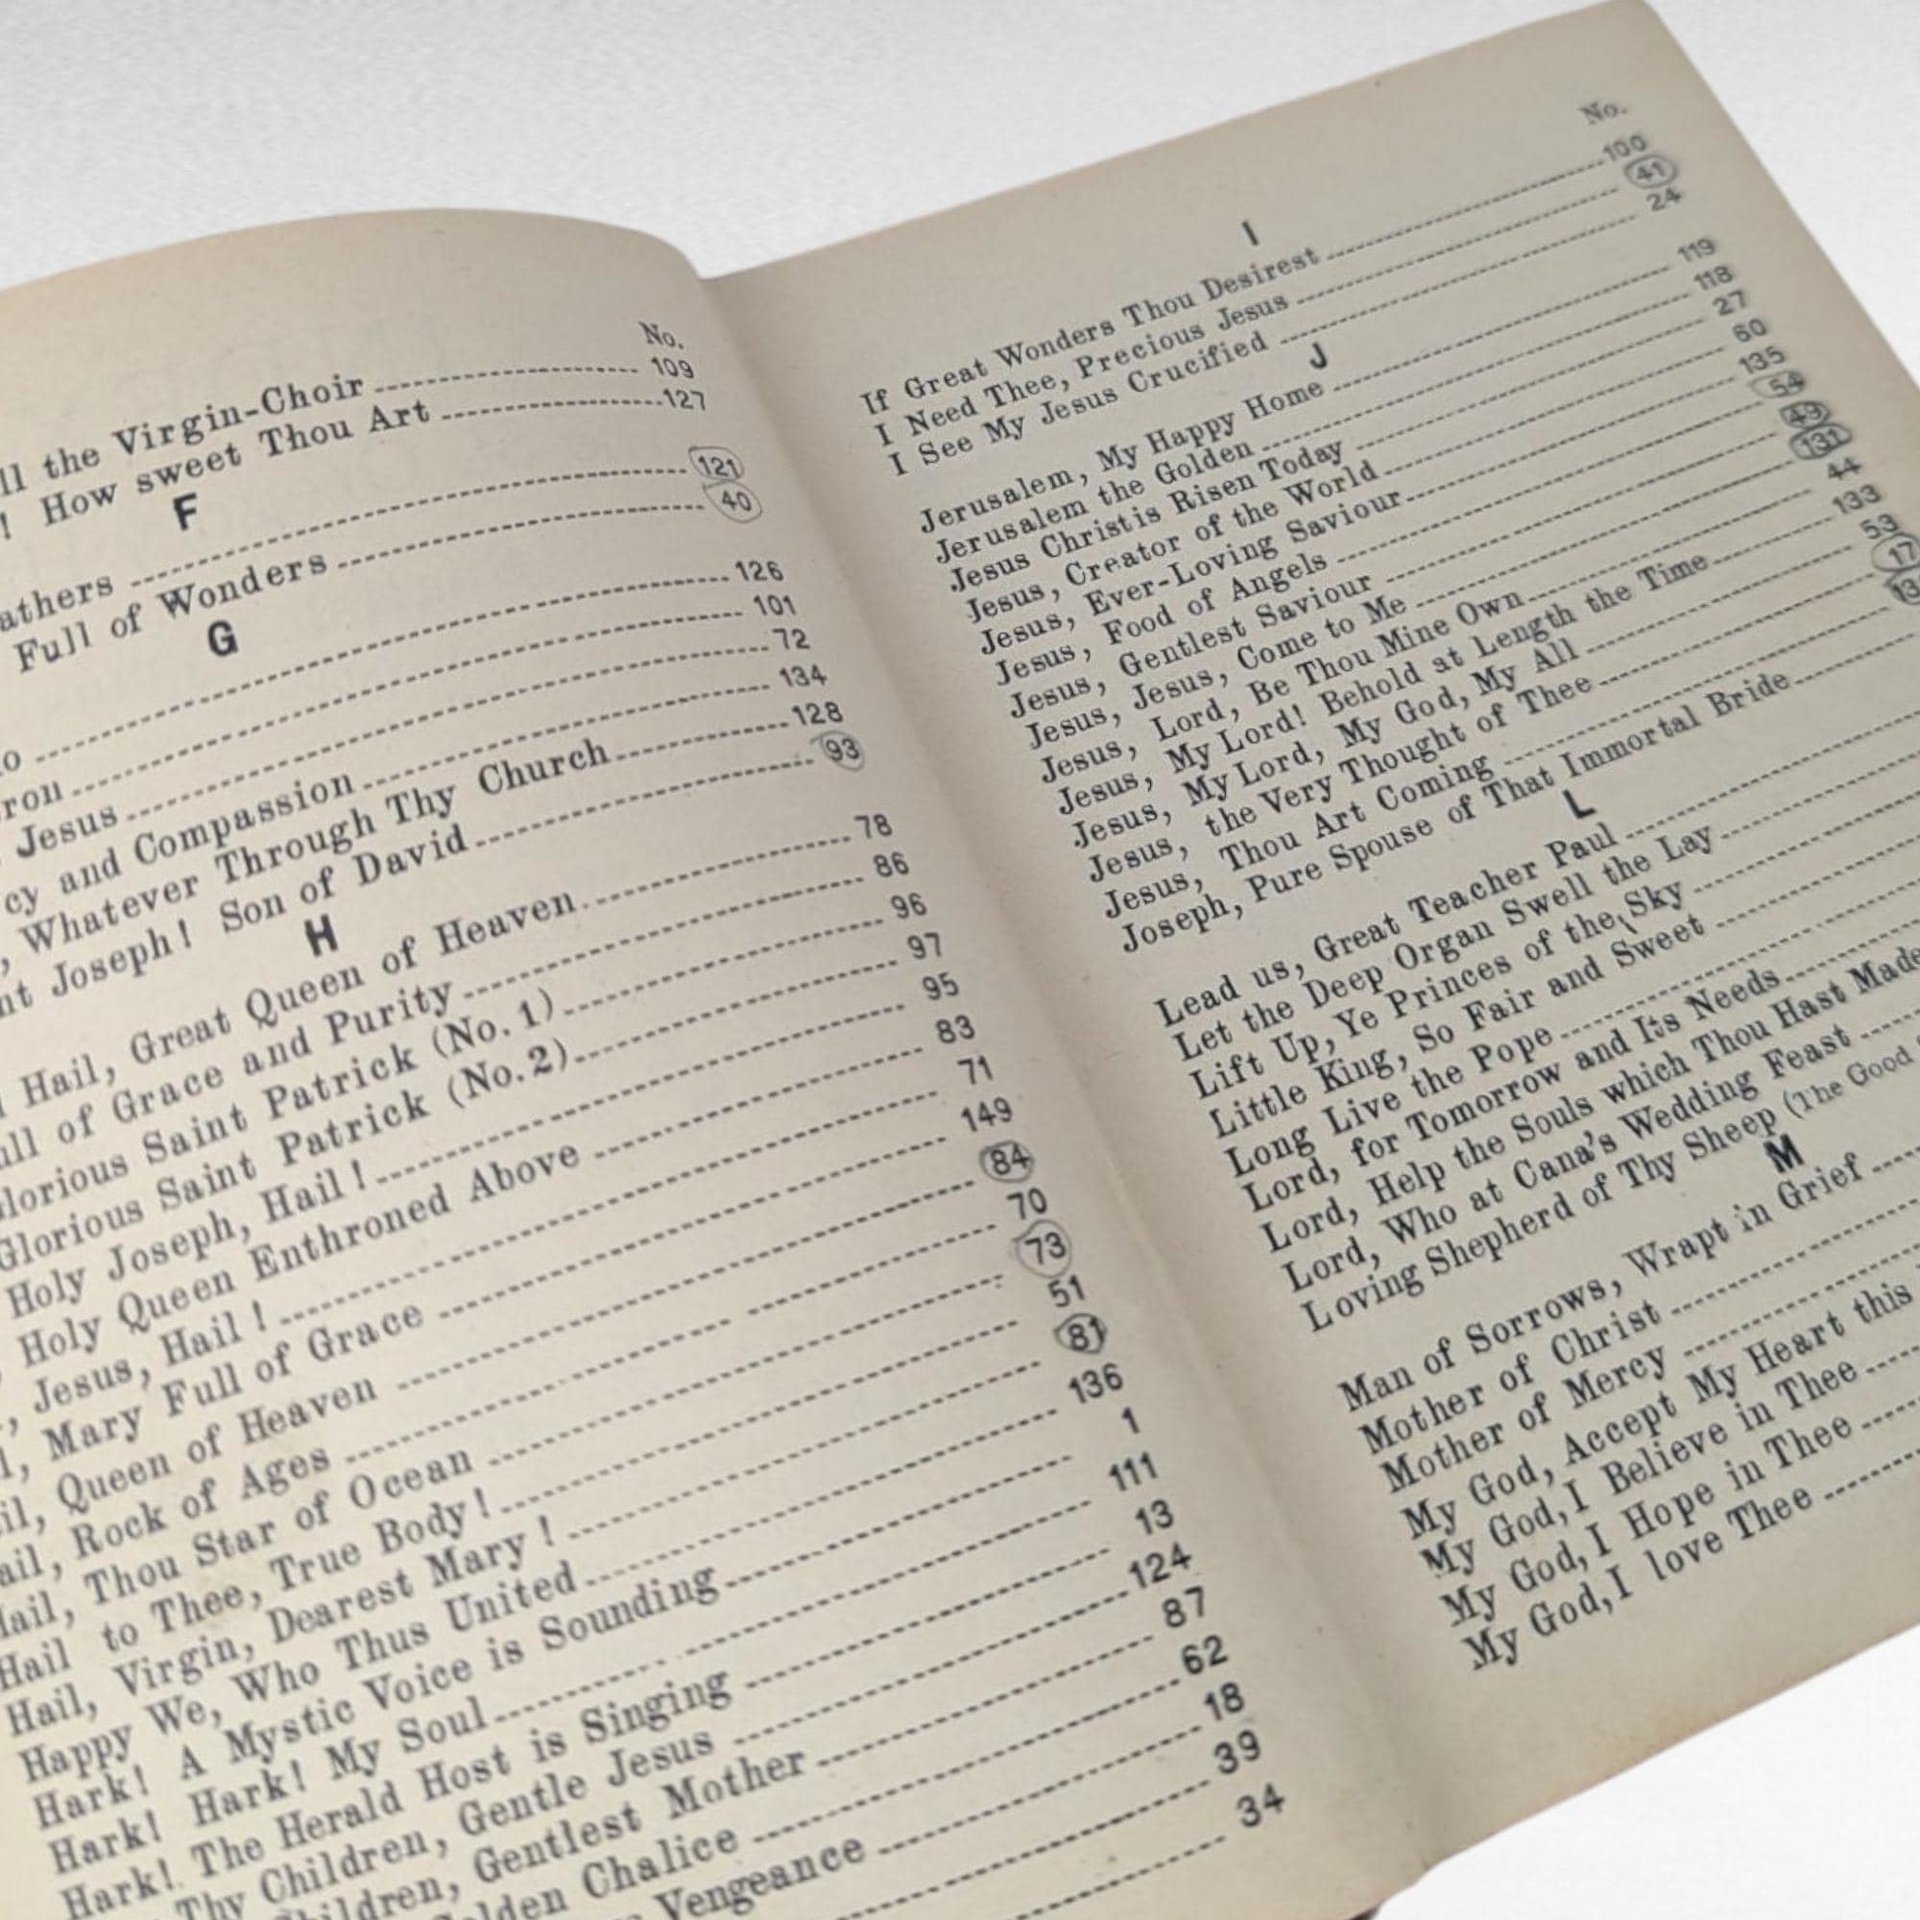 No.
ll the Virgin-Choir 109
! How sweet Thou Art 127
F
athers 121
Full of Wonders 40
G
o 126
ron 101
Jesus 72
cy and Compassion 134
, Whatever Through Thy Church 128
nt Joseph! Son of David 93
H
Hail, Great Queen of Heaven 78
ull of Grace and Purity 86
lorious Saint Patrick (No. 1) 96
Glorious Saint Patrick (No. 2) 97
Holy Joseph, Hail! 95
Holy Queen Enthroned Above 83
, Jesus, Hail! 71
l, Mary Full of Grace 149
il, Queen of Heaven 84
ail, Rock of Ages 70
Hail, Thou Star of Ocean 73
Hail to Thee, True Body! 51
Hail, Virgin, Dearest Mary! 81
Happy We, Who Thus United 136
Hark! A Mystic Voice is Sounding 1
Hark! Hark! My Soul 111
Hark! The Herald Host is Singing 13
Thy Children, Gentle Jesus 124
Children, Gentlest Mother 87
olden Chalice 62
Vengeance 18
39
34
No.
I
If Great Wonders Thou Desirest 100
I Need Thee, Precious Jesus 41
I See My Jesus Crucified 24
J
Jerusalem, My Happy Home 119
Jerusalem the Golden 118
Jesus Christ is Risen Today 27
Jesus, Creator of the World 60
Jesus, Ever-Loving Saviour 135
Jesus, Food of Angels 54
Jesus, Gentlest Saviour 49
Jesus, Jesus, Come to Me 131
Jesus, Lord, Be Thou Mine Own 44
Jesus, My Lord! Behold at Length the Time 133
Jesus, My Lord, My God, My All 53
Jesus, the Very Thought of Thee 17
Jesus, Thou Art Coming 13
Joseph, Pure Spouse of That Immortal Bride
L
Lead us, Great Teacher Paul
Let the Deep Organ Swell the Lay
Lift Up, Ye Princes of the Sky
Little King, So Fair and Sweet
Long Live the Pope
Lord, for Tomorrow and Its Needs
Lord, Help the Souls which Thou Hast Made
Lord, Who at Cana's Wedding Feast
Loving Shepherd of Thy Sheep (The Good
M
Man of Sorrows, Wrapt in Grief
Mother of Christ
Mother of Mercy
My God, Accept My Heart this
My God, I Believe in Thee
My God, I Hope in Thee
My God, I love Thee